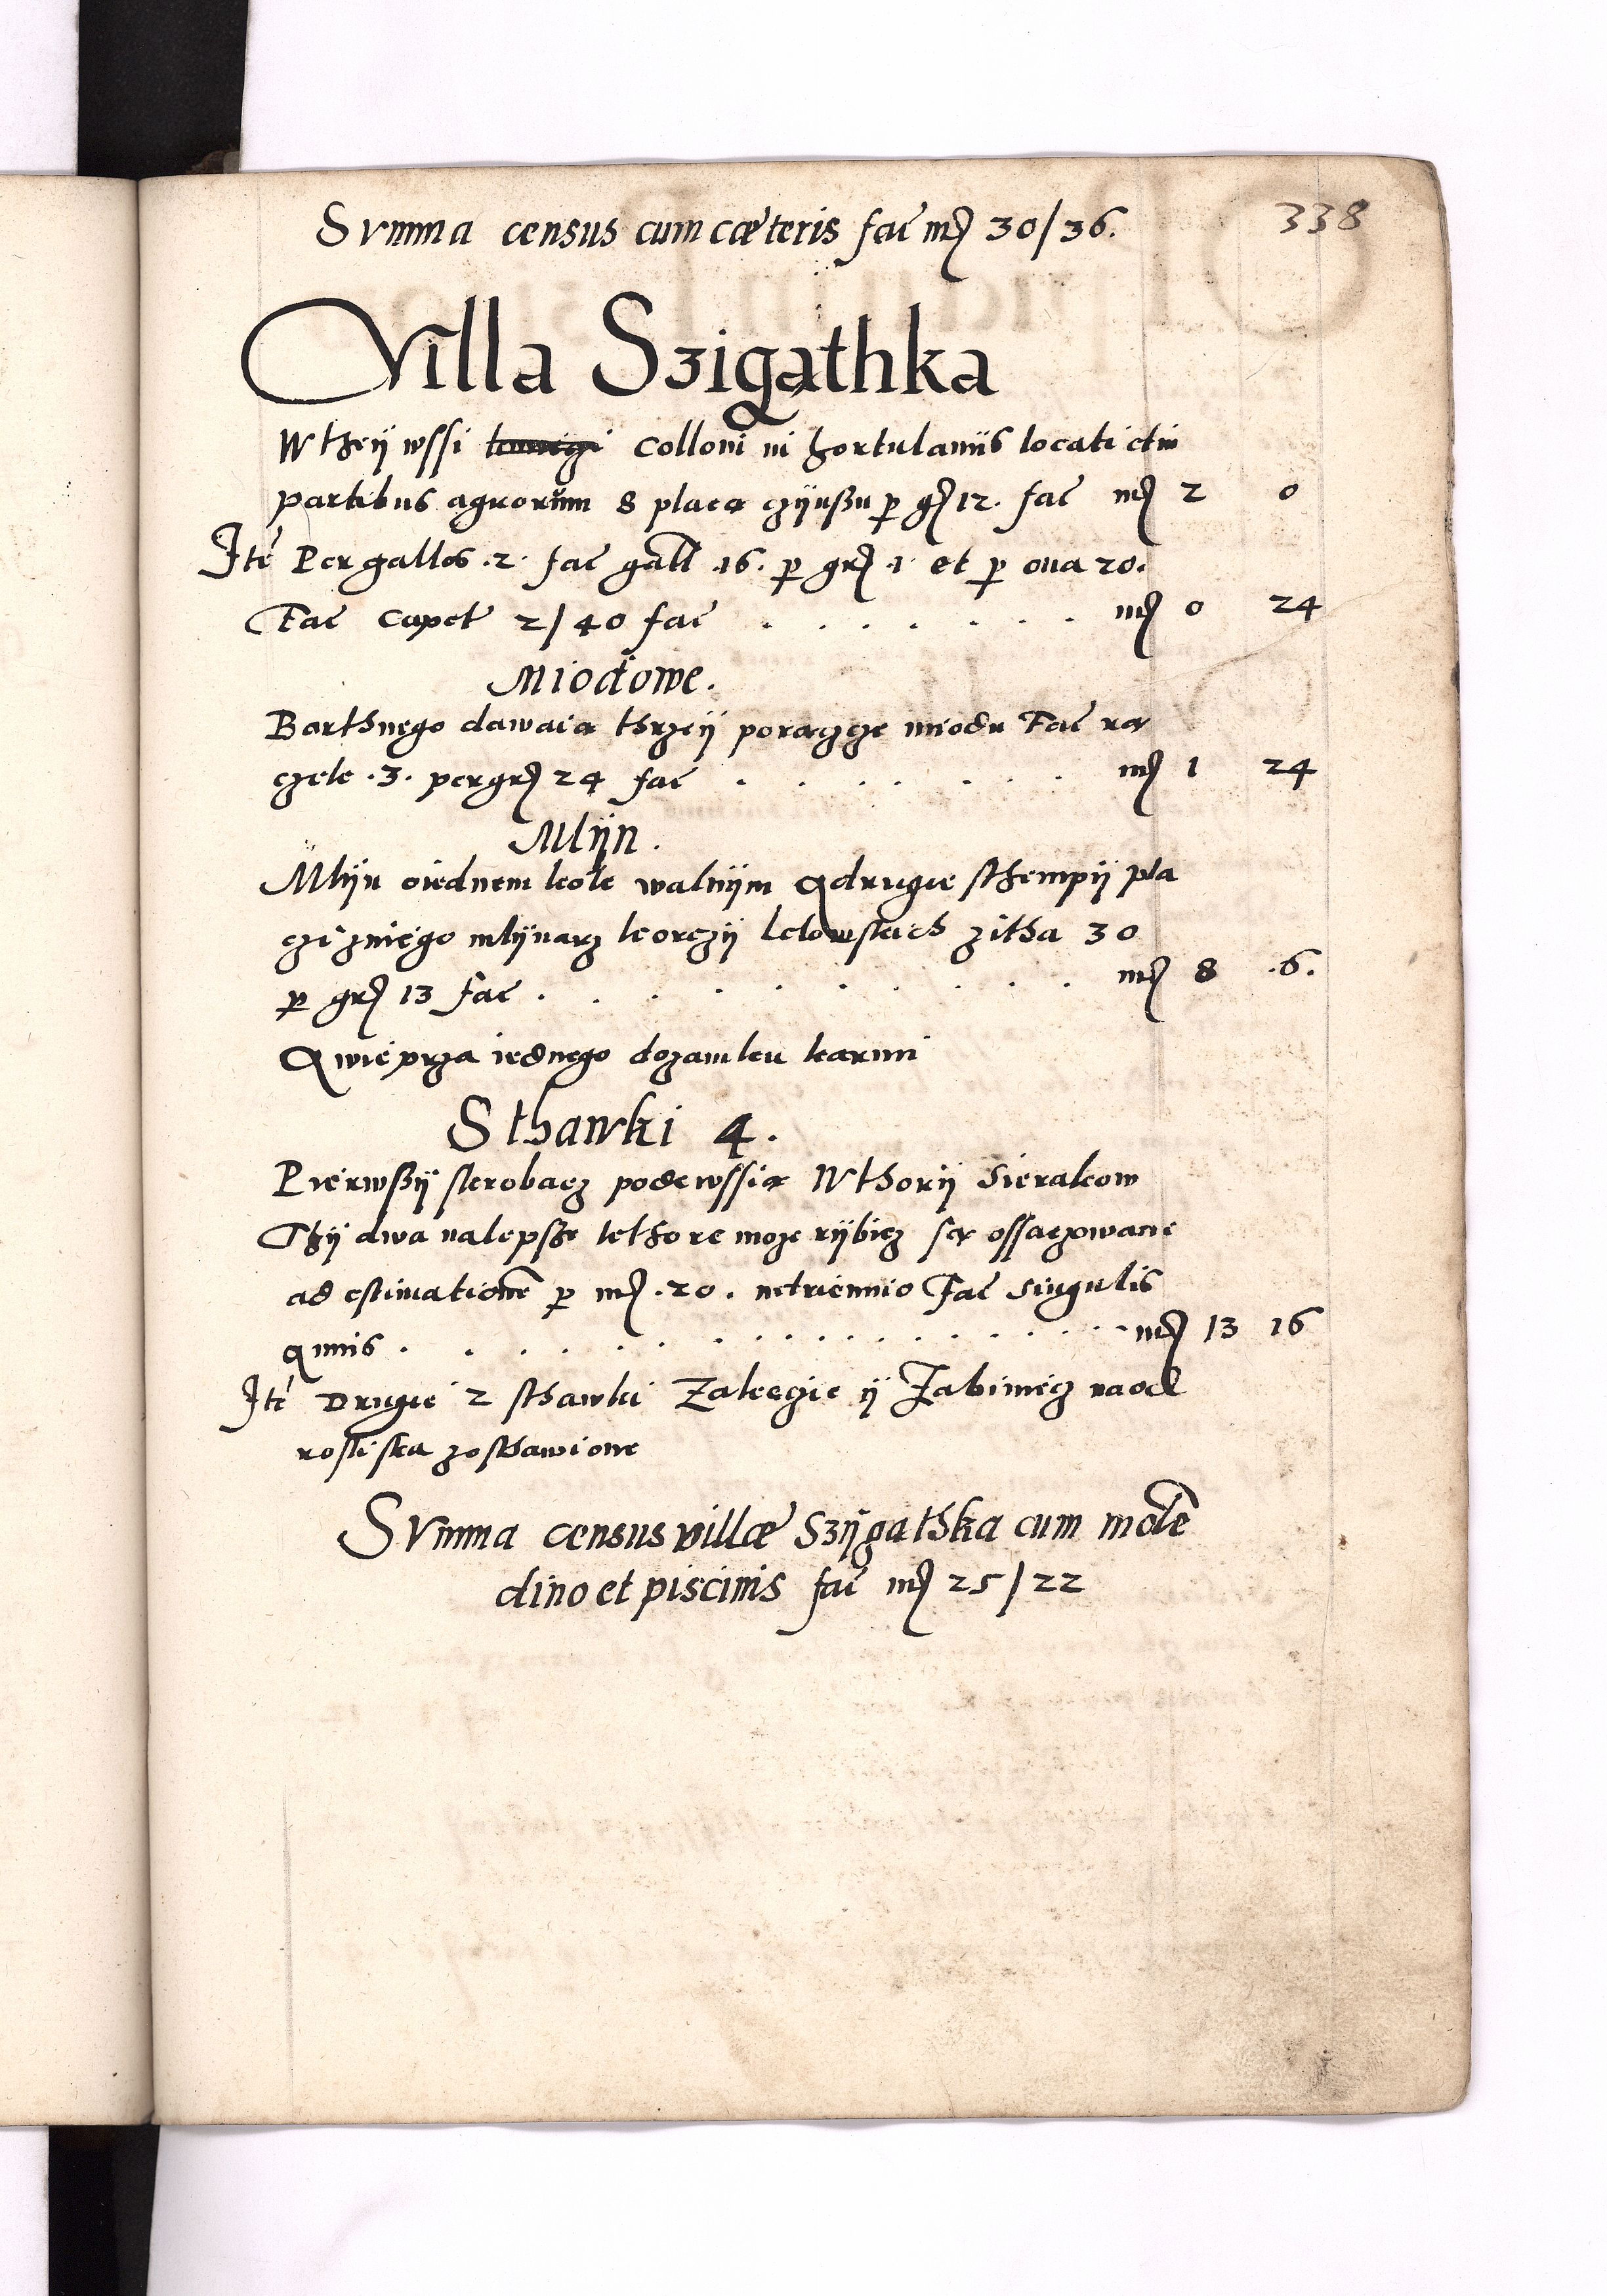 338
Svmma census cum cæteris faē mꝭ 30/36.
Villa Szigathka
W theÿ wssi Colloni ni hortulanis locati cum
partibus agrorum 8 placą czÿnszu ꝑ gꝭ 12. faē mꝭ 2 0
Itē Per gallos .2. faē gall .16. ꝑ grꝭ .1. et ꝑ oua 20.
Faē Capet 2/40 faē . . . . . . . mꝭ 0 24
Miodowe.
Barthnego dawaią thrzeÿ porączcze miodu Faē rą
czek .3. per grꝭ 24 faē . . . . . . . mꝭ 1 24
Mlÿn.
Mlÿn oiednem kole walnÿm a drugie sthempÿ pla
czi zniego mlÿnarz korczÿ Lelowskich zitha 30
ꝑ grꝭ 13 faē . . . . . . . . . . mꝭ 8 .6.
A wieprza iednego do zamku karmi
Sthawki 4.
Pierwszÿ skrobacz pode wssią Wthorÿ Sierakow
Thÿ dwa nalepsze kthore moze rÿbicz są ossaczowane
ad estimationē ꝑ mꝭ .20. in triennio Faē singulis
annis . . . . . . . . . . . . . mꝭ 13 16
Itē Drugie 2 sthawki Zakęczie ÿ Zabiniecz na od
rostiska zosthawione
Svmma census villæ Szÿgathka cum molē
dino et piscinis faē mꝭ 25/22